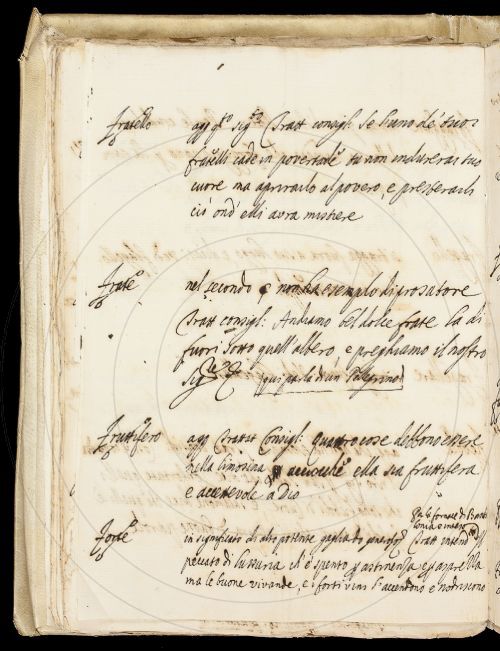 Fratello
agg. q.to sig.to Tratt consigl: Se huno de' tuoi
fratelli cade in povertade tu non indurerai tuo
cuore ma aprirailo al povero, e presterali
ciò ond' elli avra mistere
Frate
nel secondo e non ha esemplo di prosatore
Tratt consigl: Andiamo bel dolce frate la di
fuori sotto quell albero, e preghiamo il nostro
Sig.re qui parla di un Pellegrino
Fruttifero
agg Trattat Consigl: Quattro cose debbono essere
nella limosina accioche ella sia fruttifera
e accettevole a Dio
Forte
in significato di alto potente gagliardo
Tratt
peccato di lussuria si e spento p astinenza e p asprezza
ma le buone vivande, e i forti vini l'accendono e nodriscono